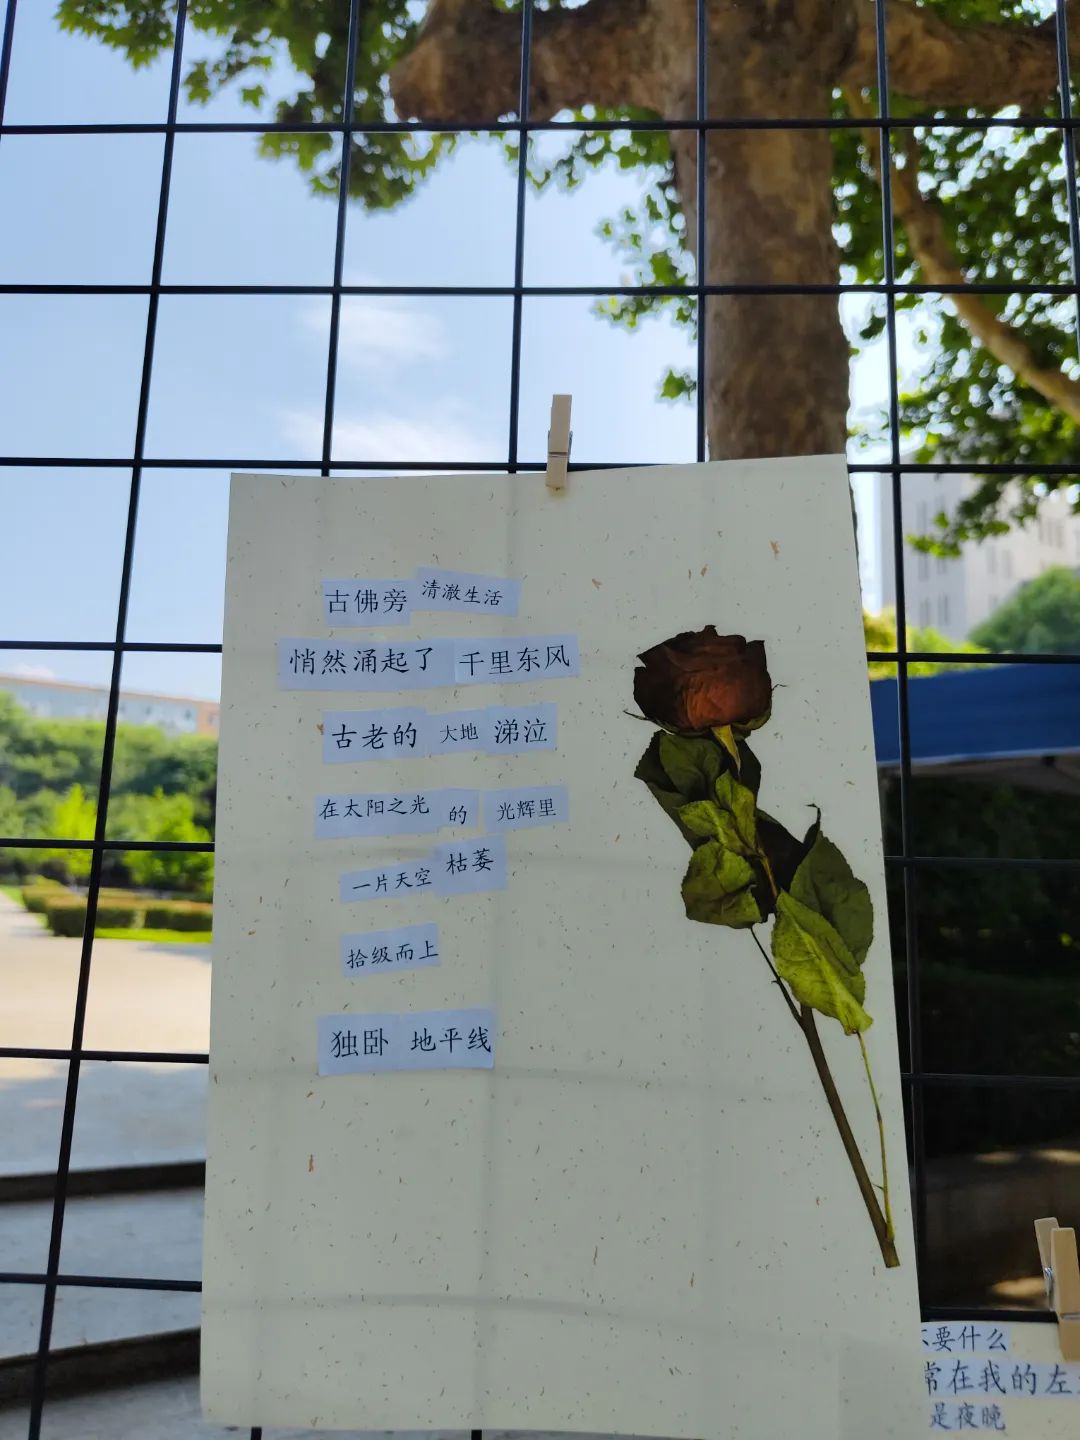 古佛旁 清澈生活
悄然涌起了 千里东风
古老的 大地 涕泣
在太阳之光 的 光辉里
一片天空 枯萎
拾级而上
独卧 地平线
要什么
常在我的左
是夜晚